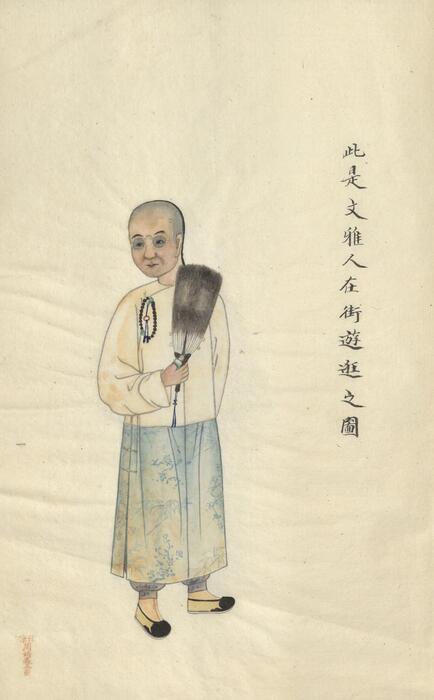 此是文雅人在街遊逛之圖